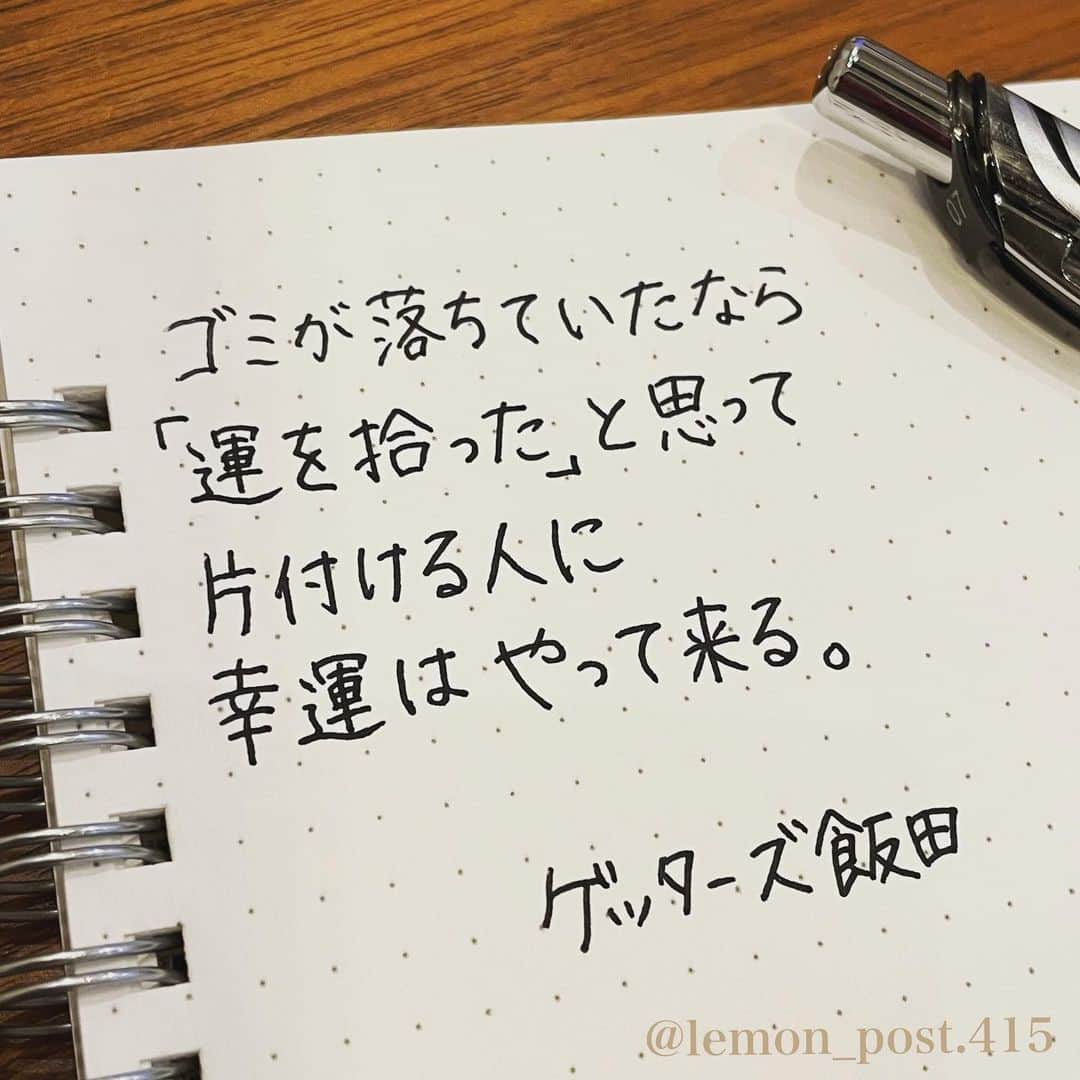 ゴミが落ちていたなら
「運を拾った」と思って
片付ける人に
幸運はやって来る。
ゲッターズ飯田
07
@lemon_post.415